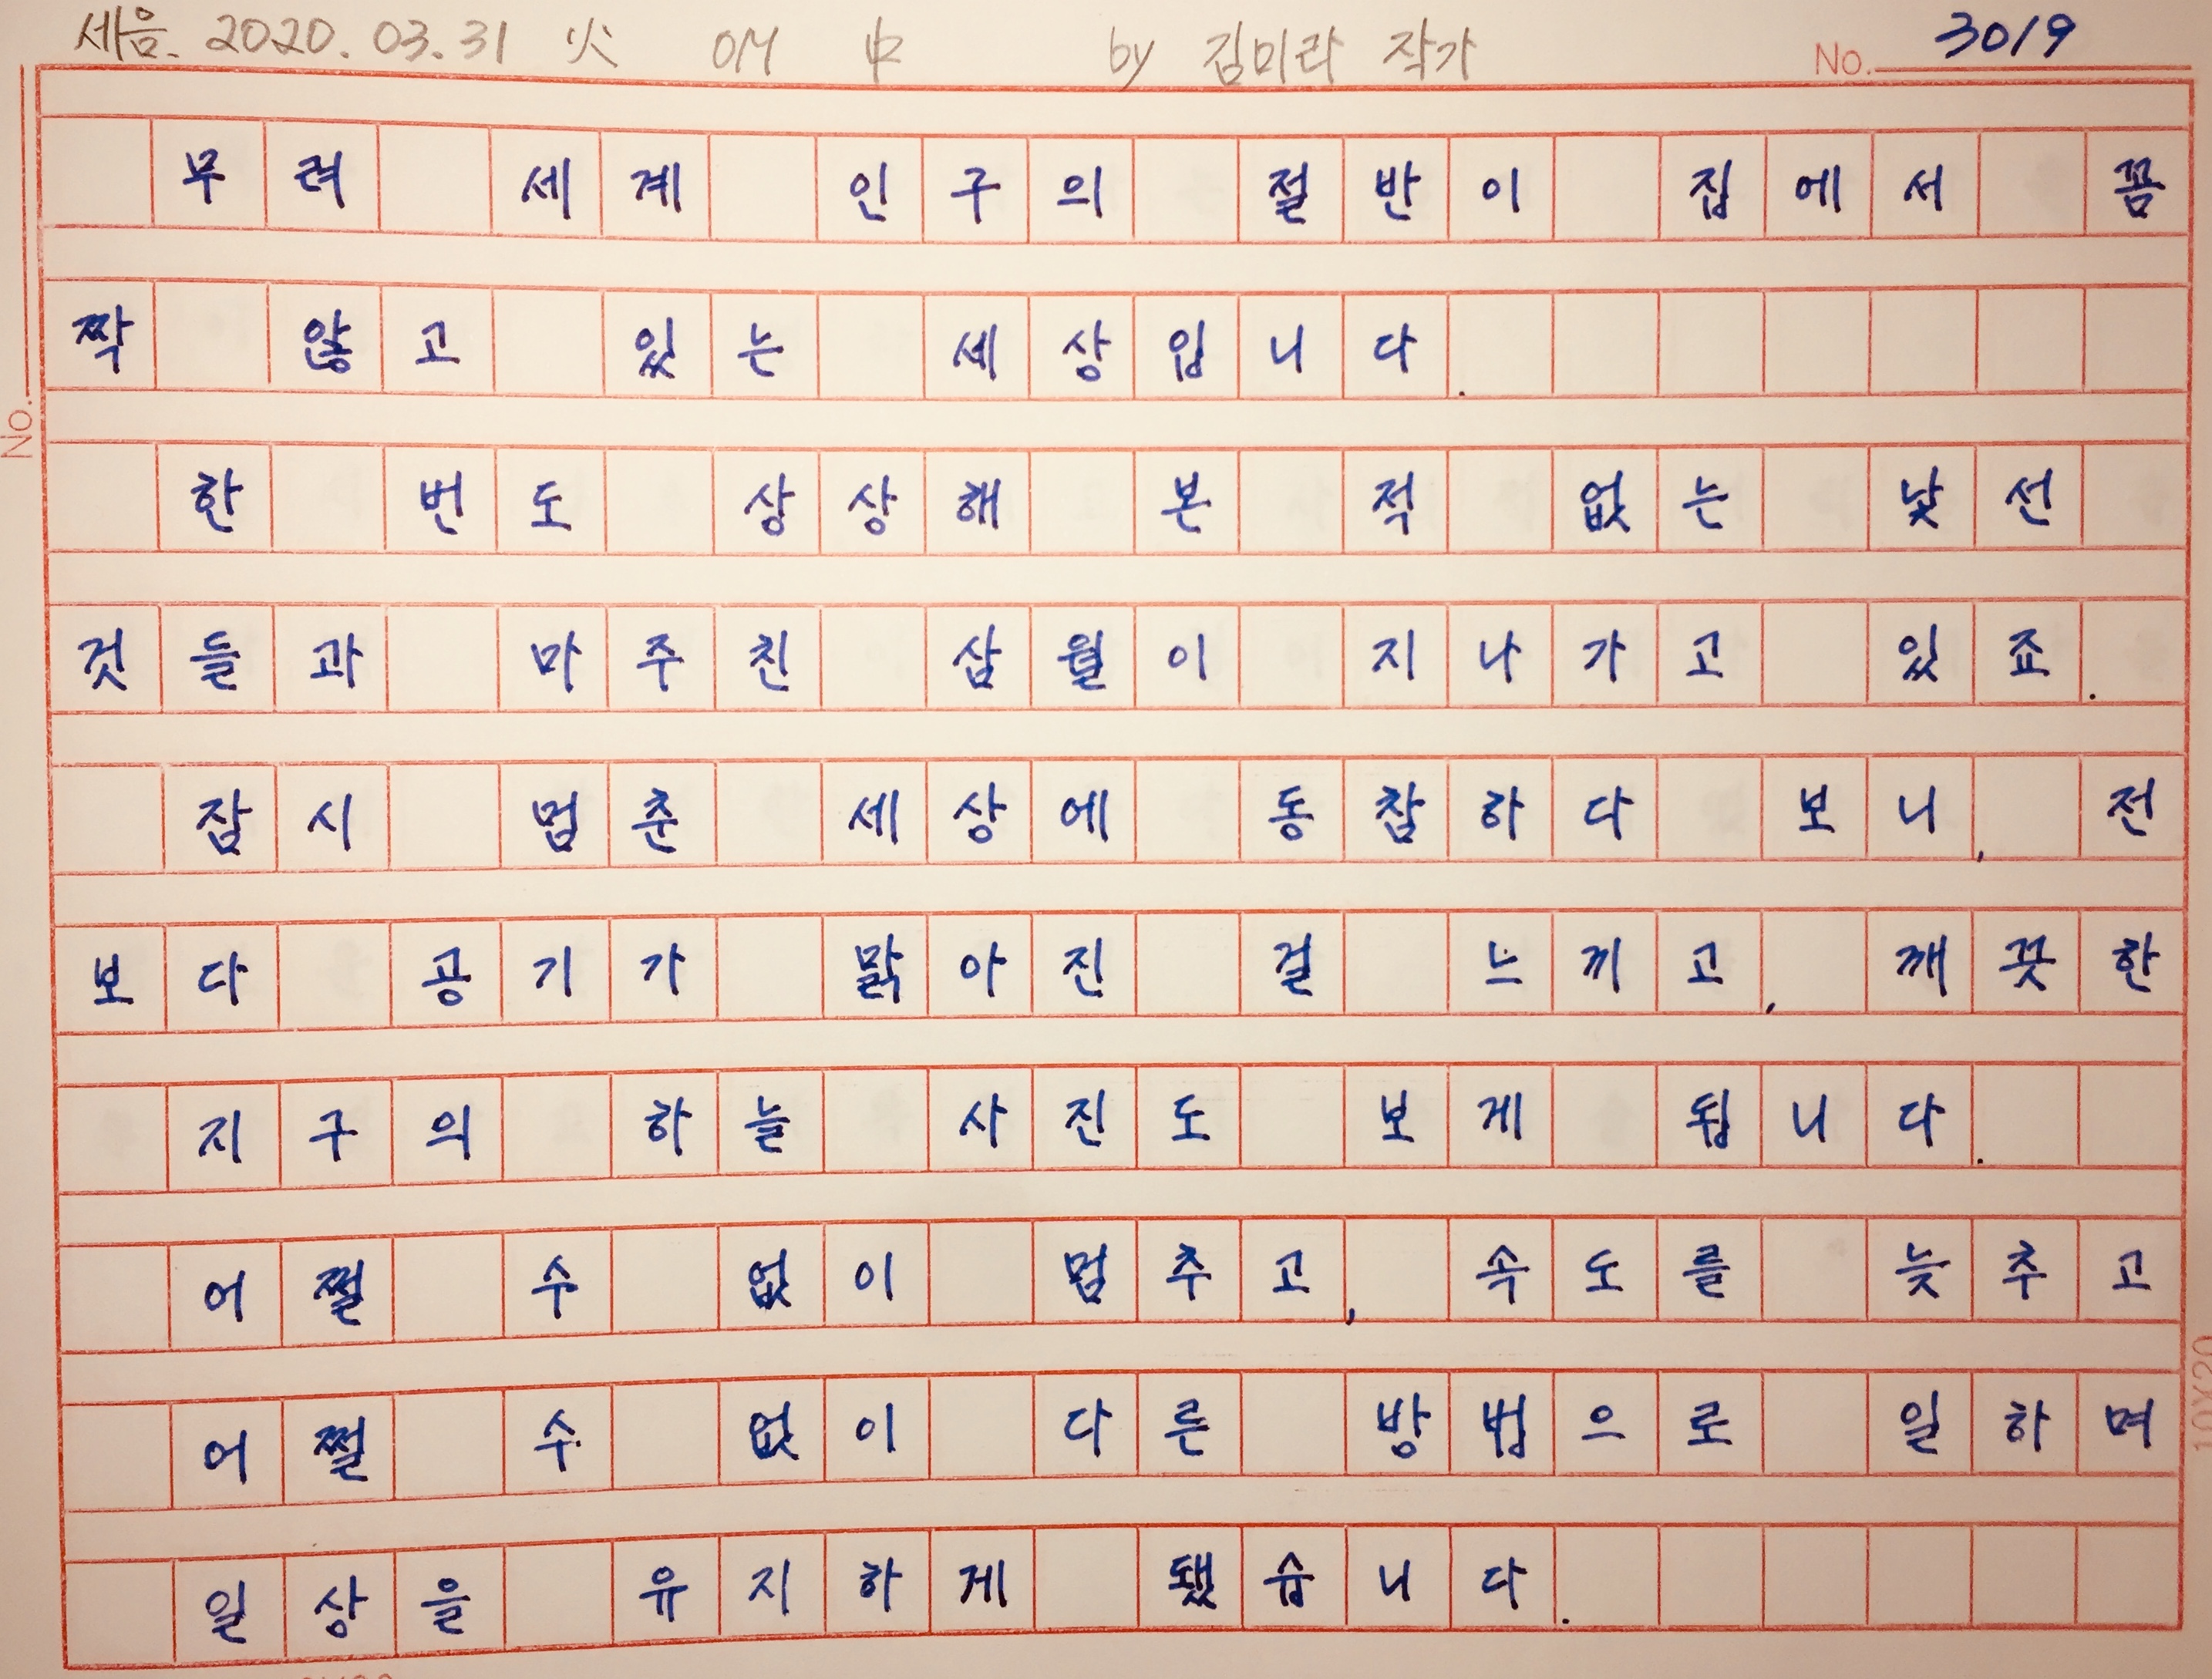 세음. 2020. 03. 31 火 이서 中 by 김미라 작가 No. 3019
무려 세계 인구의 절반이 집에서 꼼
짝 않고 있는 세상입니다.
한 번도 상상해 본 적 없는 낯선
것들과 마주친 삼월이 지나가고 있죠.
잠시 멈춘 세상에 동참하다 보니, 전
보다 공기가 맑아진 걸 느끼고, 깨끗한
지구의 하늘 사진도 보게 됩니다.
어쩔 수 없이 멈추고, 속도를 늦추고
어쩔 수 없이 다른 방법으로 일하며
일상을 유지하게 됐습니다.
No.
10X20